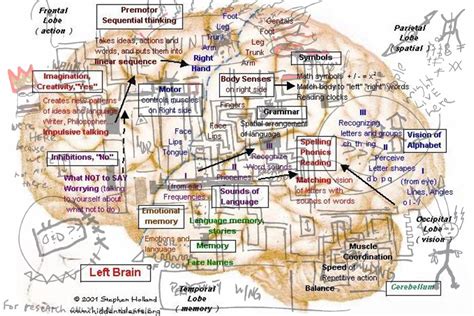 Frontal
Lobe
(above)
Premotor
Sequential thinking
Takes ideas, actions and
words, and puts them into
linear sequence
Foot
Leg
Trunk
Arm
Right
Hand
Foot
Genitals
Leg
Trunk
Arm
Parietal
Lobe
(spatial)
Imagination,
Creativity,"Yes"
Creates new patterns
of ideas and language
Writer, Philosopher
Impulsive talking
Motor
controls muscles
on Right side
Body Senses
on right side
Fingers
Symbols
Math symbols
Match body to "left" "right" words
Reading clocks
Grammar
Spatial arrangement
of language
Face
Lips
Tongue
Face
Lips
III
Recognize
Word sounds
II
Phonemes
I
(from ear)
Frequencies
Spelling
Phonics
Reading
Matching vision
of letters with
sounds of words
III
Recognizing
letters and groups
ch, th, ing
II
Perceive
Letter shapes
I
(from eye)
Lines, Angles
Vision of
Alphabet
Inhibitions, "No"
What NOT to SAY
Worrying (talking
to yourself about
what not to do)
Sounds of
Language
Emotional
memory
Emotions and
language
Language memory,
stories
Memory
Face Names
Occipital
Lobe
(vision)
Muscle
Coordination
Speed
Repetitive action
Balance
Cerebellum
Left Brain
© 2001 Stephen Holland
www.hiddentalents.org
Temporal
Lobe
(memory)
For research